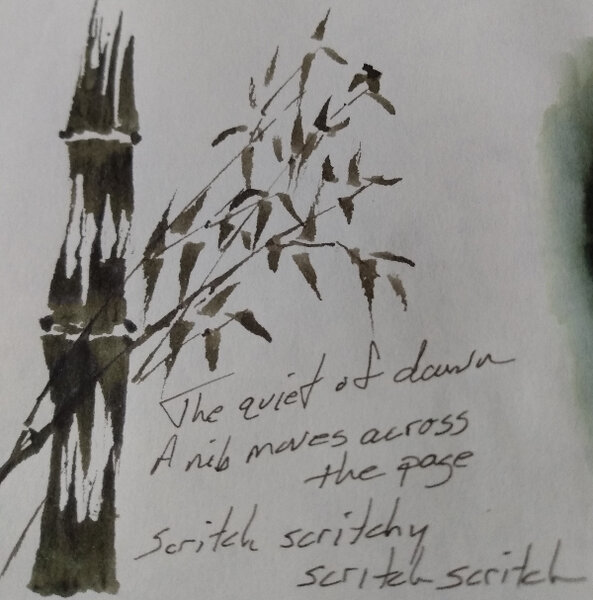 The quiet of dawn
A nib moves across
the page
scritch scritchy
scritch scritch